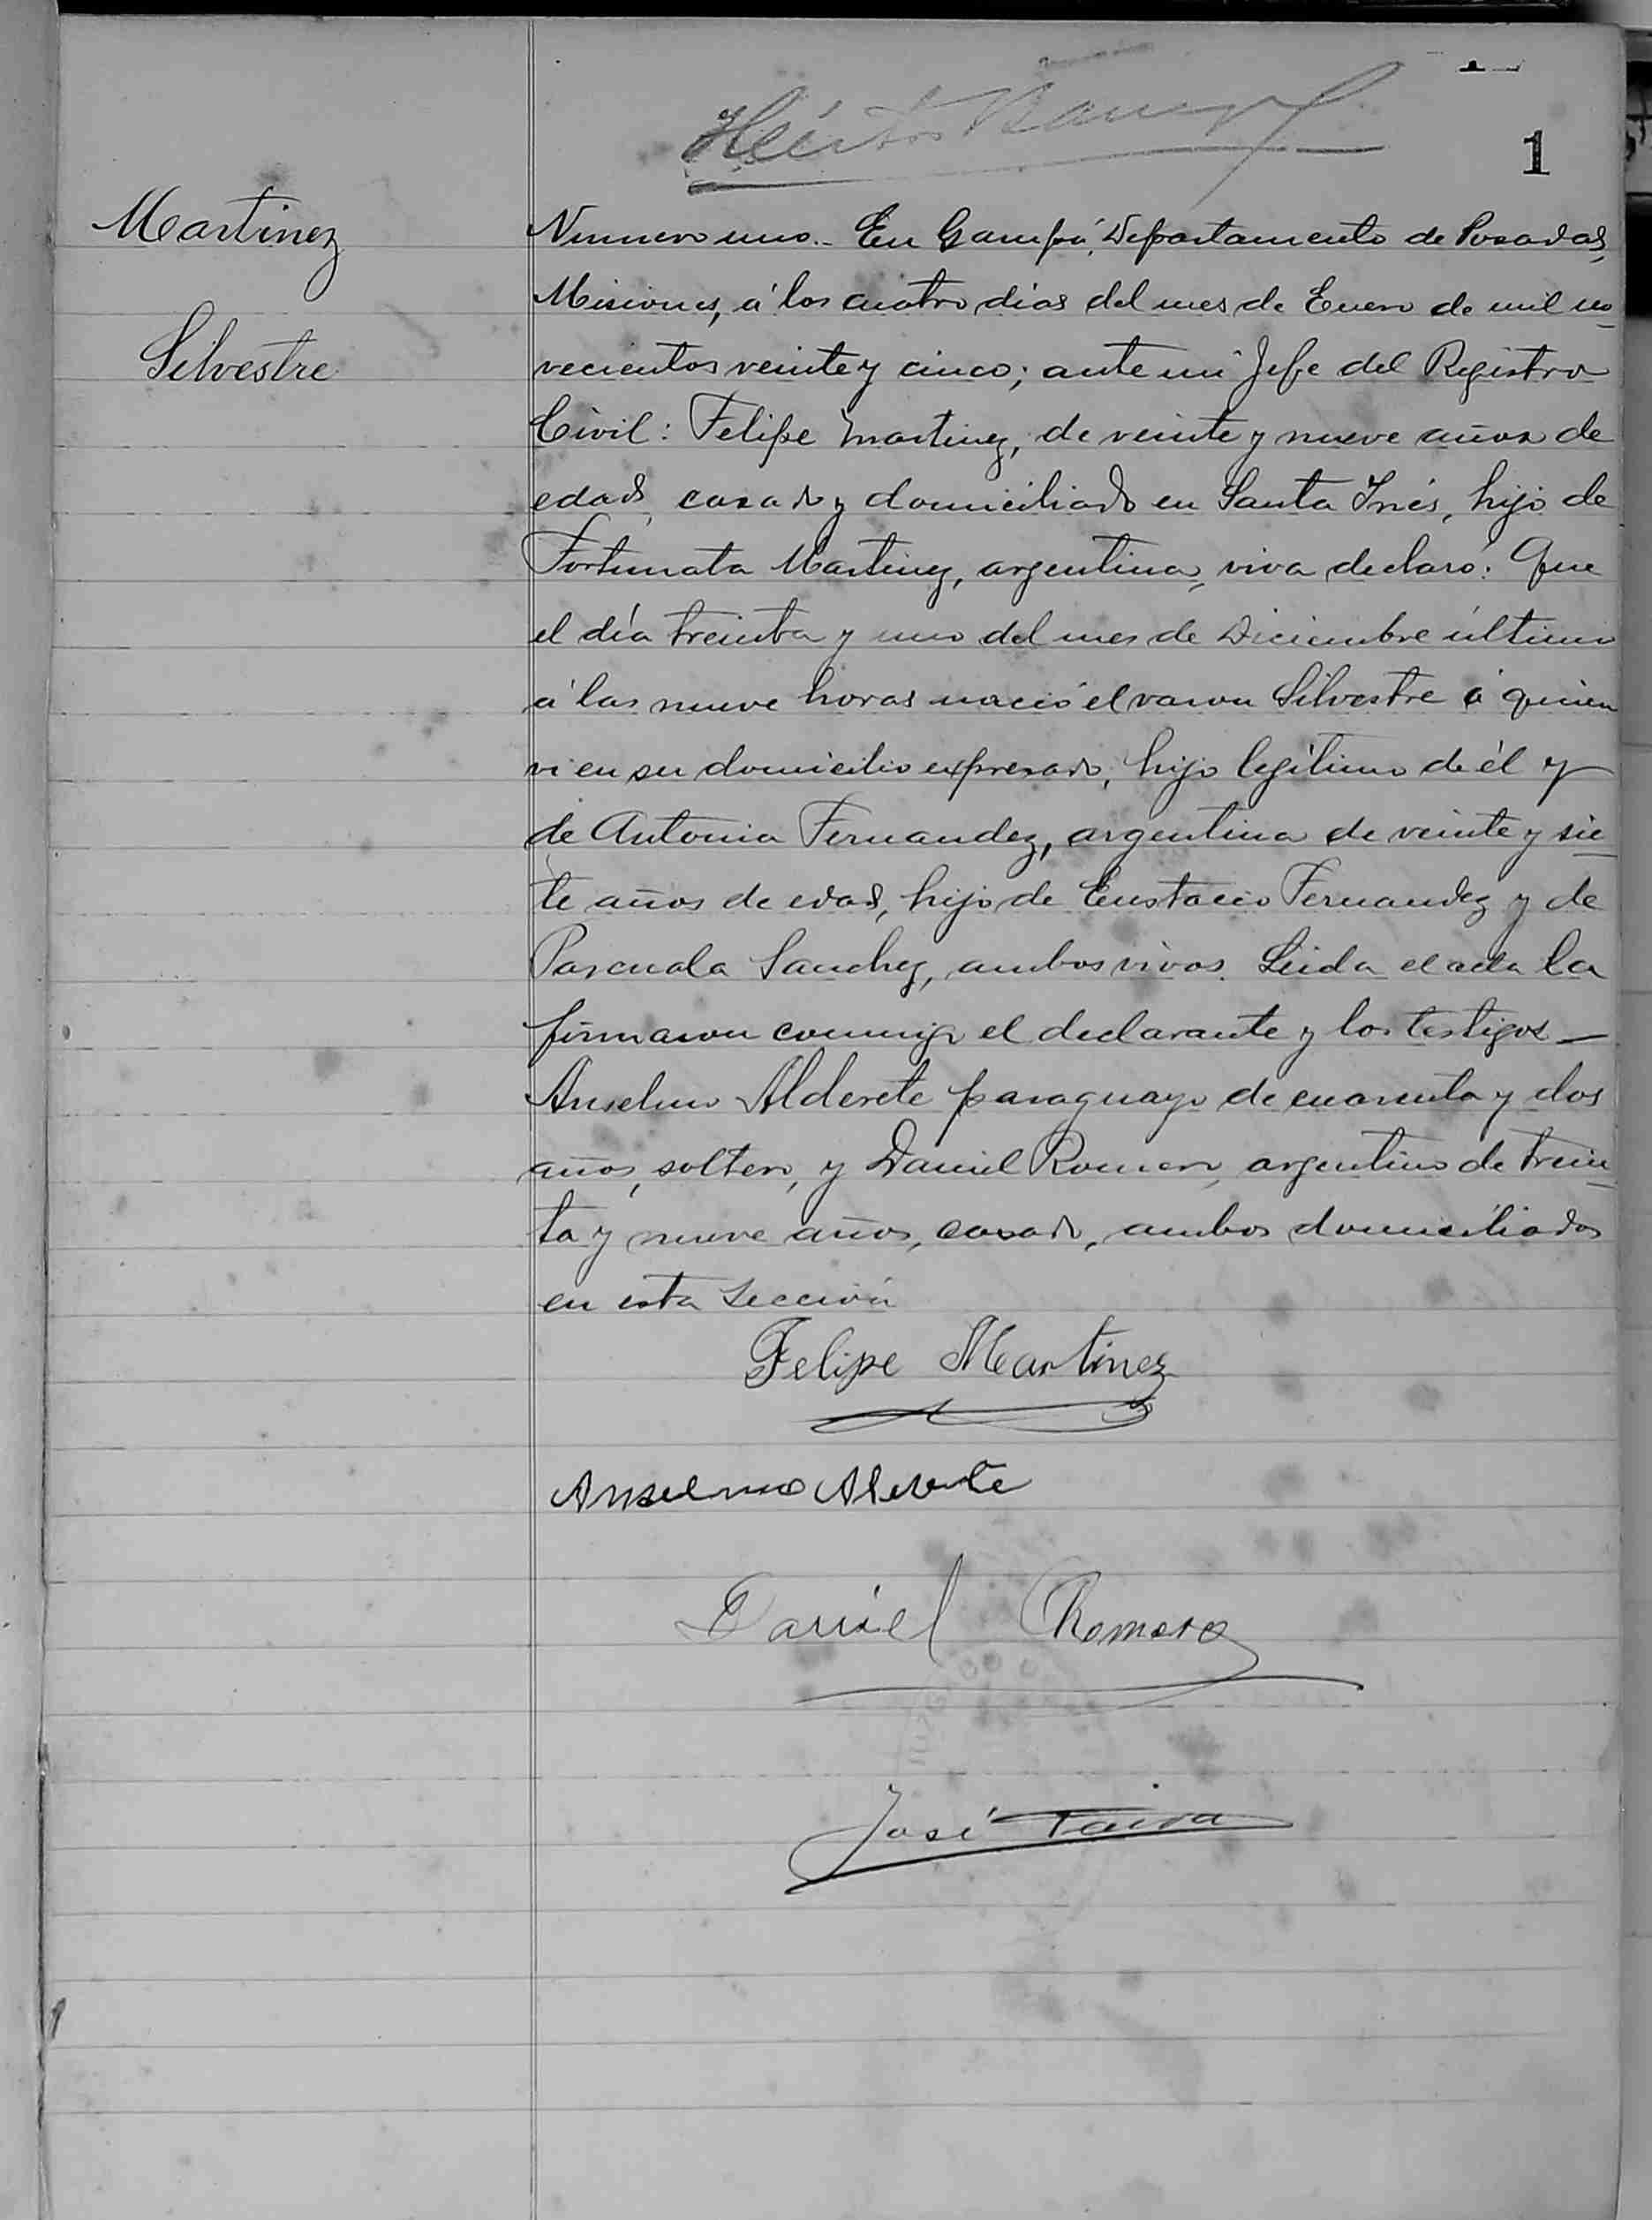 1
Martinez
Silvestre
Numero uno.- En Garupá, Departamento de Posadas,
Misiones, á los cuatro días del mes de Enero de mil no-
vecientos veinte y cinco; ante mi Jefe del Registro
Civil: Felipe Martinez, de veinte y nueve años de
edad, casado y domiciliado en Santa Inés, hijo de
Fortunata Martinez, argentina, viva declaró: Que
el día treinta y uno del mes de Diciembre último
á las nueve horas nació el varon Silvestre á quien
vi en su domicilio expresado; hijo legítimo de él y
de Antonia Fernandez, argentina de veinte y sie-
te años de edad, hijo de Eustacio Fernandez y de
Pascuala Sanchez, ambos vivos. Leida el acta la
firmaron conmigo el declarante y los testigos —
Anselmo Alderete paraguayo de cuarenta y dos
años, soltero, y Daniel Romero, argentino de trein-
ta y nueve años, casado, ambos domiciliados
en esta Sección
Felipe Martinez
Anselmo
Daniel Romero
José Paiva